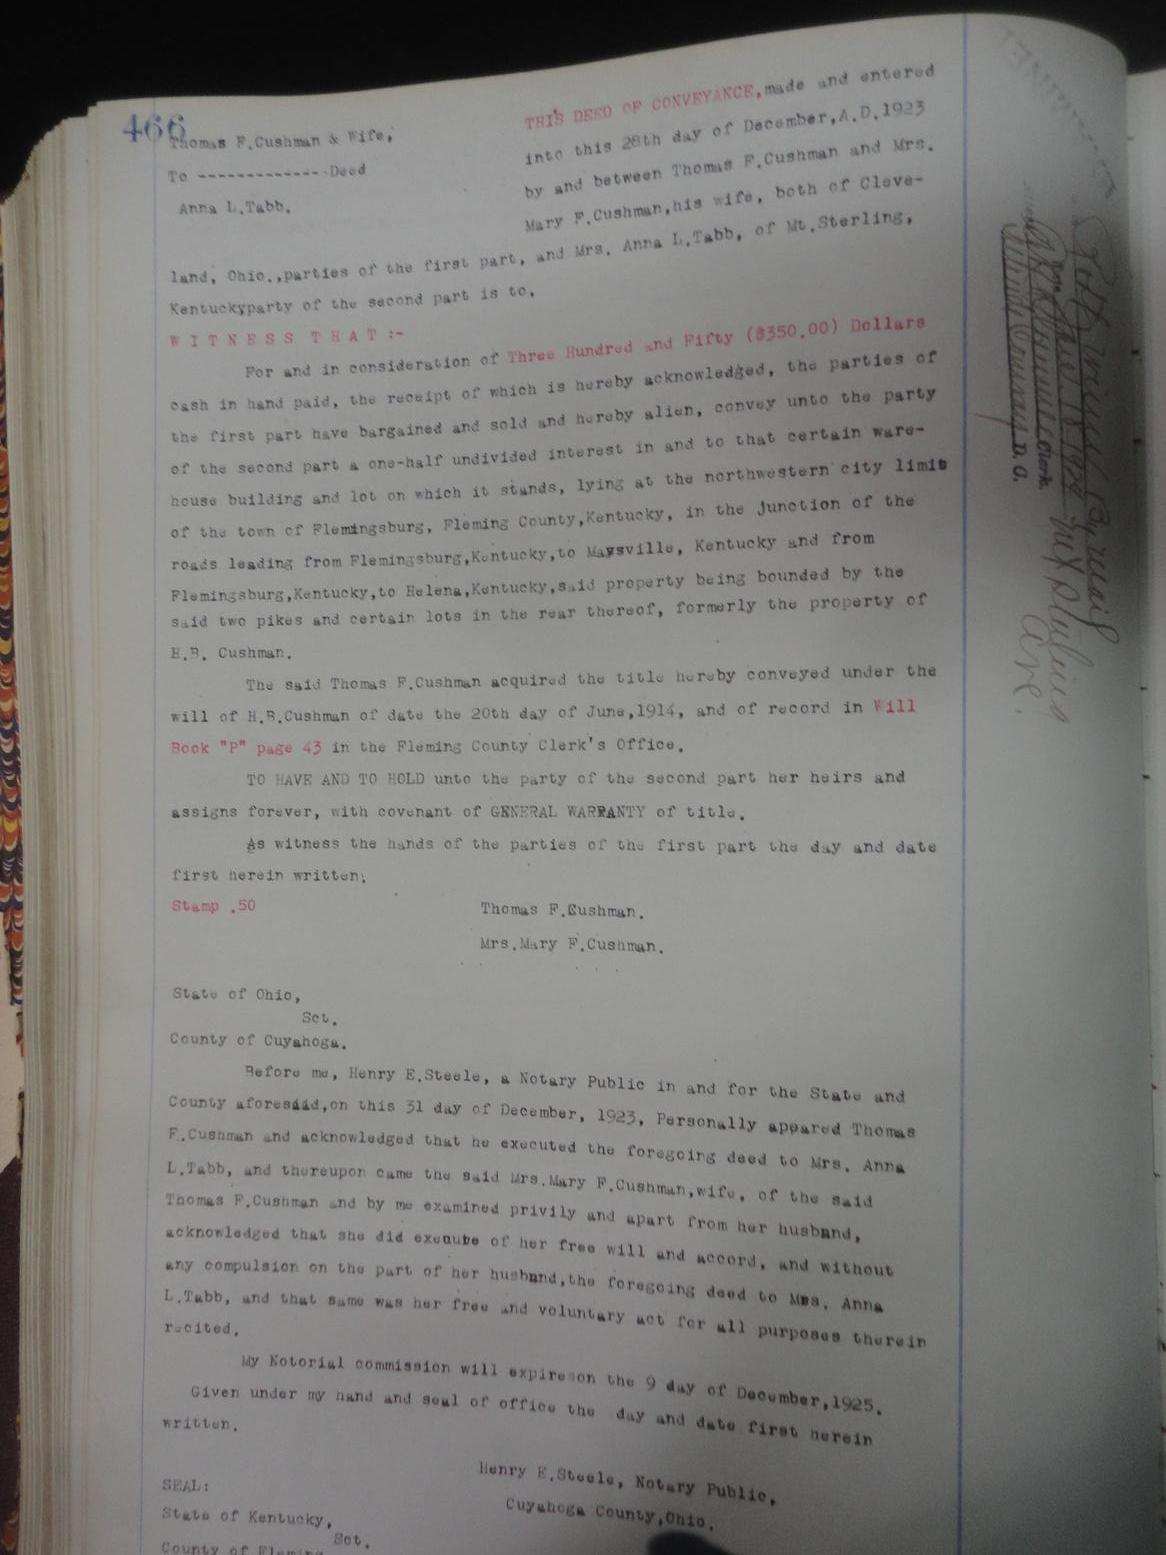 466
Thomas F.Cushman & Wife,
To -------------Deed
Anna L.Tabb.
THIS DEED OF CONVEYANCE,made and entered
into this 28th day of December,A.D.1923
by and between Thomas F.Cushman and Mrs.
Mary F.Cushman,his wife, both of Cleve-
land, Ohio.,parties of the first part, and Mrs. Anna L.Tabb, of Mt.Sterling,
Kentucky,party of the second part is to,
W I T N E S S  T H A T :-
For and in consideration of Three Hundred and Fifty ($350.00) Dollars
cash in hand paid, the receipt of which is hereby acknowledged, the parties of
the first part have bargained and sold and hereby alien, convey unto the party
of the second part a one-half undivided interest in and to that certain ware-
house building and lot on which it stands, lying at the northwestern city limit
of the town of Flemingsburg, Fleming County,Kentucky, in the junction of the
roads leading from Flemingsburg,Kentucky,to Maysville, Kentucky and from
Flemingsburg,Kentucky,to Helena,Kentucky,said property being bounded by the
said two pikes and certain lots in the rear thereof, formerly the property of
H.B. Cushman.
The said Thomas F.Cushman acquired the title hereby conveyed under the
will of H.B.Cushman of date the 20th day of June,1914, and of record in Will
Book "P" page 43 in the Fleming County Clerk's Office.
TO HAVE AND TO HOLD unto the party of the second part her heirs and
assigns forever, with covenant of GENERAL WARRANTY of title.
As witness the hands of the parties of the first part the day and date
first herein written.
Stamp .50
Thomas F.Cushman.
Mrs.Mary F.Cushman.
State of Ohio,
Sct.
County of Cuyahoga.
Before me, Henry E.Steele, a Notary Public in and for the State and
County aforesaid,on this 31 day of December, 1923, Personally appeared Thomas
F.Cushman and acknowledged that he executed the foregoing deed to Mrs. Anna
L.Tabb, and thereupon came the said Mrs.Mary F.Cushman,wife, of the said
Thomas F.Cushman and by me examined privily and apart from her husband,
acknowledged that she did execute of her free will and accord, and without
any compulsion on the part of her husband,the foregoing deed to Mrs. Anna
L.Tabb, and that same was her free and voluntary act for all purposes therein
recited.
My Notorial commission will expire on the 9 day of December,1925.
Given under my hand and seal of office the day and date first herein
written.
Henry E.Steele, Notary Public,
Cuyahoga County,Ohio.
SEAL:
State of Kentucky,
Sct.
County of Fleming
Clerk
D. C.